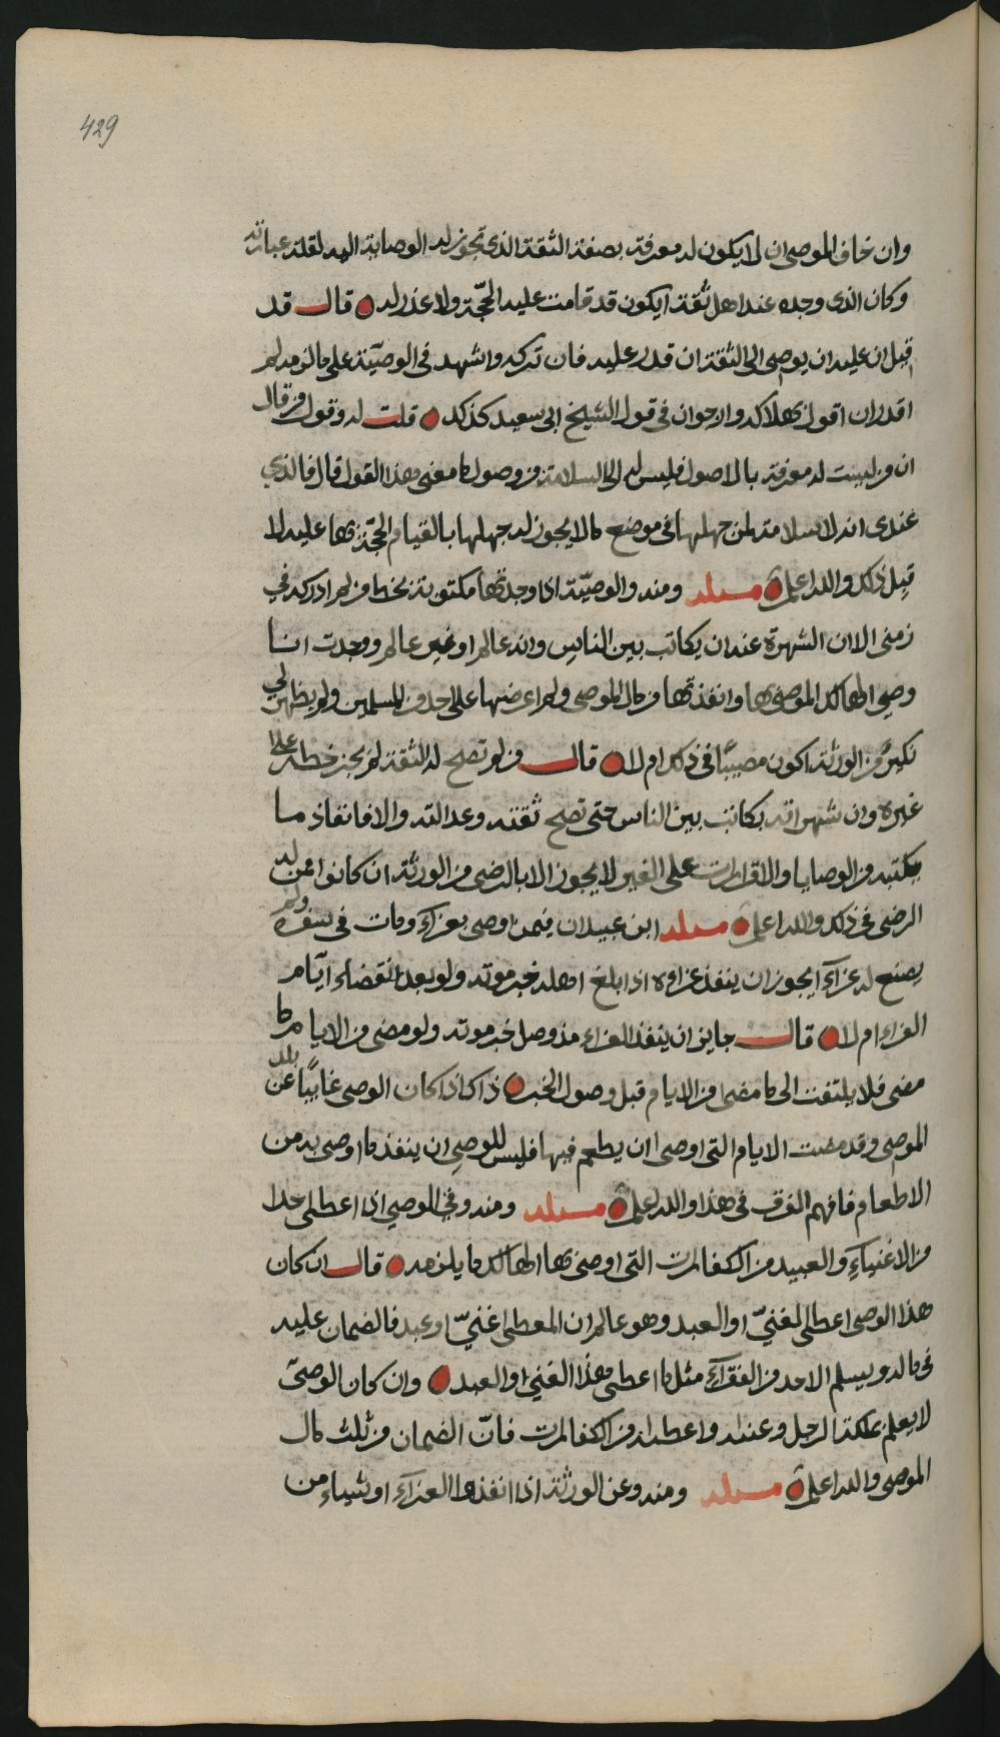 429
وان خاف الموصي ان لا يكون له معرفة بصفة الثقة الذي تجوز له الوصاية اليه لقلة عبارته
وكان الذي وجده عند اهل ثقة ايكون قد قامت عليه الحجّة ولا عذر له قال قد
قيل ان عليه ان يوصي الى الثقة ان قدر عليه فان تركه واشهد في الوصيّة على ما لزمه لم
اقدر ان اقول بهلاكه وارجو ان في قول الشيخ ابي سعيد كذلك قلت له وقول من قال
ان من ليست له معرفة بالاصول فليس له الى السلامة من وصول ما معنى هذا القول قال فالذي
عندي انه لا سلامة لمن جهلها في موضع ما لا يجوز له جهلها بالقيام الحجّة بها عليه لا
قبل ذلك والله اعلم مسئلة ومنه والوصيّة اذا وجدتها مكتوبة بخط من لم ادركه في
زمني الا ان الشهرة عنه ان يكاتب بين الناس وانه عالم او غير عالم ووجدت انا
وصي الهالك الموصي بها وانفذتها من مال الموصي ولم اعرضها على احد من المسلمين ولم يظهر لي
نكير من الورثة اكون مصيبًا في ذلك ام لا قال من لم تصح له الثقة لم يجز خطه على
غيره وان شهر انه يكاتب بين الناس حتى تصح ثقته وعدالته والا فانفاذ ما
يكتبه من الوصايا والاقرارات على الغير لا يجوز الا بالرضى من الورثة ان كانوا ممن له
الرضى في ذلك والله اعلم مسئلة ابن عبيدان فيمن اوصى بعزآء ومات في سفره ولم
يصنع له عزآء ايجوز ان ينفذ عزاؤه اذا بلغ اهله خبر موته ولو بعد انقضاء ايّام
العزاء ام لا قال جايز ان ينفذ العزاء مذ وصل خبر موته ولو مضى من الايام ما
مضى فلا يلتفت الى ما مضى من الايام قبل وصول الخبر ذاك اذا كان الوصي غايبًا عن بلد
الموصي وقد مضت الايام التي اوصى ان يطعم فيها فليس للوصي ان ينفذ ما اوصى به من
الاطعام فافهم الفرق في هذا والله اعلم مسئلة ومنه وفي الوصي اذا اعطى احدا
من الاغنياء والعبيد من الكفارات التي اوصى بها الهالك ما يلزمه قال ان كان
هذا الوصي اعطى الغنيّ او العبد وهو عالم ان المعطى غنيّ او عبد فالضمان عليه
في ماله ويسلم لاحد من الفقرآء مثل ما اعطى هذا الغني او العبد وان كان الوصيّ
لا يعلم الرجل وعناه واعطاه من الكفارات فانّ الضمان من ثلث مال
الموصي والله اعلم مسئلة ومنه وعن الورثة اذا انفذوا العزآء او شيئاء من